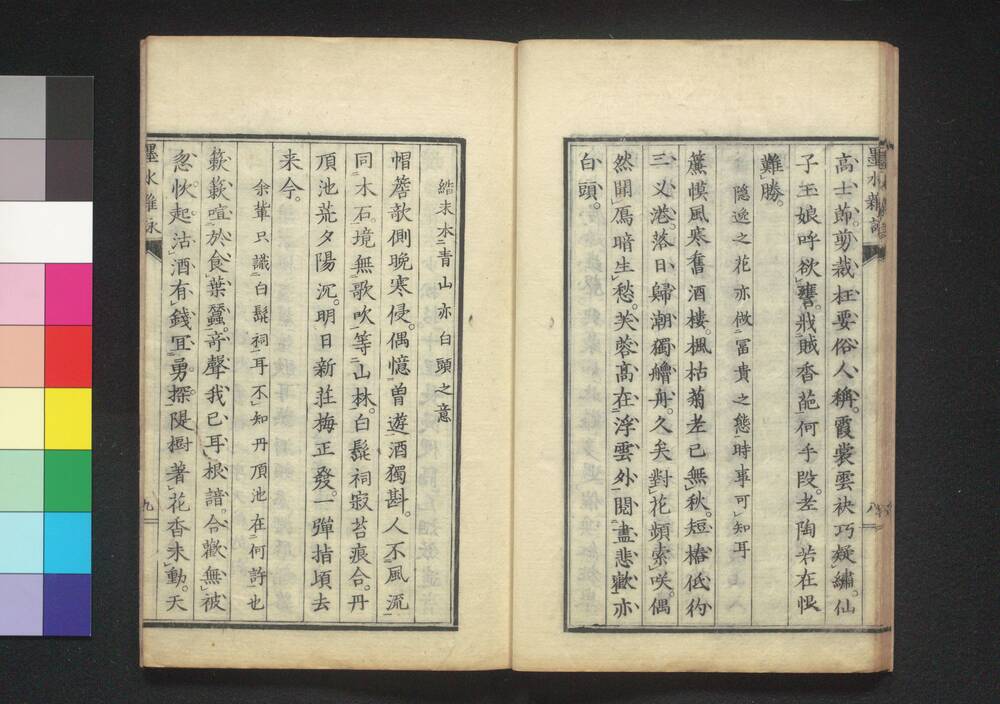 墨水雜詠
高士茆。剪裁枉要俗人稱。霞裳雲袂巧凝繡。仙
子玉娘呼欲譍。戕賊香葩何手段。老陶若在恨
難勝。
隱逸之花亦倣冨貴之態時事可知耳
簾幙風寒奮酒樓。楓枯菊老已無秋。短樁低約
三义港。落日歸潮獨艪舟。久矣對花頻索咲。偶
然聞鴈暗生愁。芙蓉髙在浮雲外。閲盡悲歡亦
白頭。
八
結末本青山亦白頭之意
帽簷欹側晩寒侵。偶憶曽遊酒獨斟。人不風流
同木石。境無歌吹等山林。白髭祠寂苔痕合。丹
頂池荒夕陽沉。明日新莊梅正發。一彈指頃去
来今。
余輩只識白髭祠耳不知丹頂池在何許也
簌簌喧於食葉蠶。奇聲我已耳根諳。合歡無被
忽忺起。沽酒有錢冝勇探。隄樹著花香未動。天
墨水雜詠
九